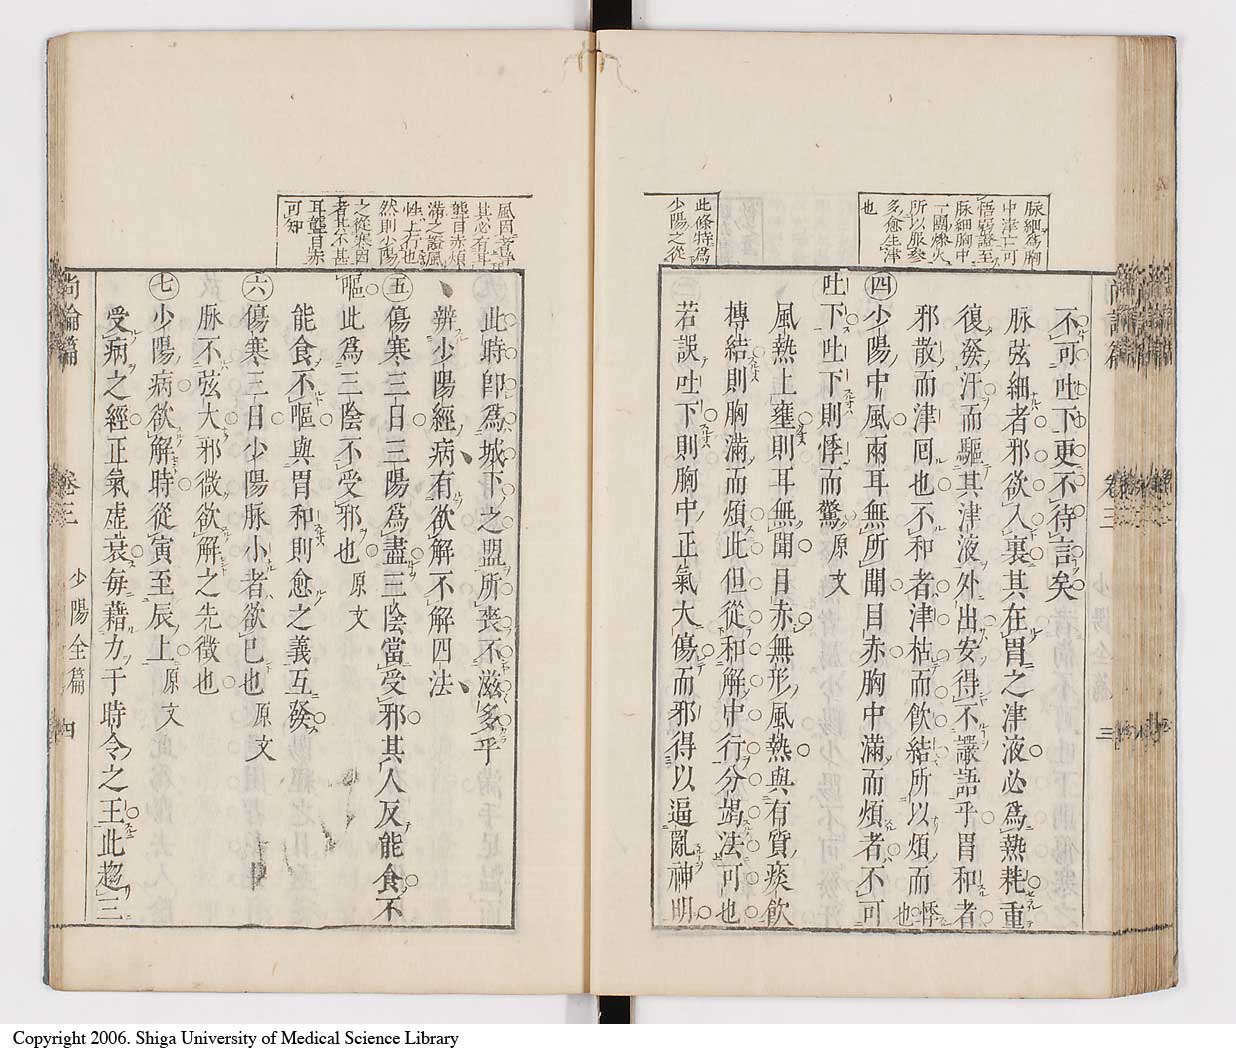 脉細爲胸
中津亡可
悟竊證至
脉細胸中
一團燥火
所以服藥
多愈生津
也
此條特爲
少陽之從
不可吐下更不待言矣
脉弦細者邪欲入裏其在胃之津液必爲熱耗重
復發汗而驅其津液外出安得不讝語乎胃和者
邪散而津回也不和者津枯而飲結所以煩而悸也
㊃少陽中風兩耳無所聞目赤胸中滿而煩者不可
吐下吐下則悸而驚原文
風熱上壅則耳無聞目赤無形風熱與有質痰飲
摶結則胸滿而煩此但從和解中行分竭法可也
若誤吐下則胸中正氣大傷而邪得以逼亂神明
尚論篇
卷三
三
風因者
其必有耳
聾目赤煩
滿之證風
性上行也
然則少陽
之從寒因
者其不甚
耳聾目赤
可知
此時即爲城下之盟所喪不滋多乎
辨少陽經病有欲解不解四法
㊄傷寒三日三陽爲盡三陰當受邪其人反能食不
嘔此爲三陰不受邪也原文
能食不嘔與胃和則愈之義互發
㊅傷寒三日少陽脉小者欲已也原文
脉不弦大邪微欲解之先徵也
㊆少陽病欲解時從寅至辰上原文
受病之經正氣虛衰每藉力于時令之王此趨三
尚論篇
卷三
少陽全篇
四
Copyright 2006. Shiga University of Medical Science Library